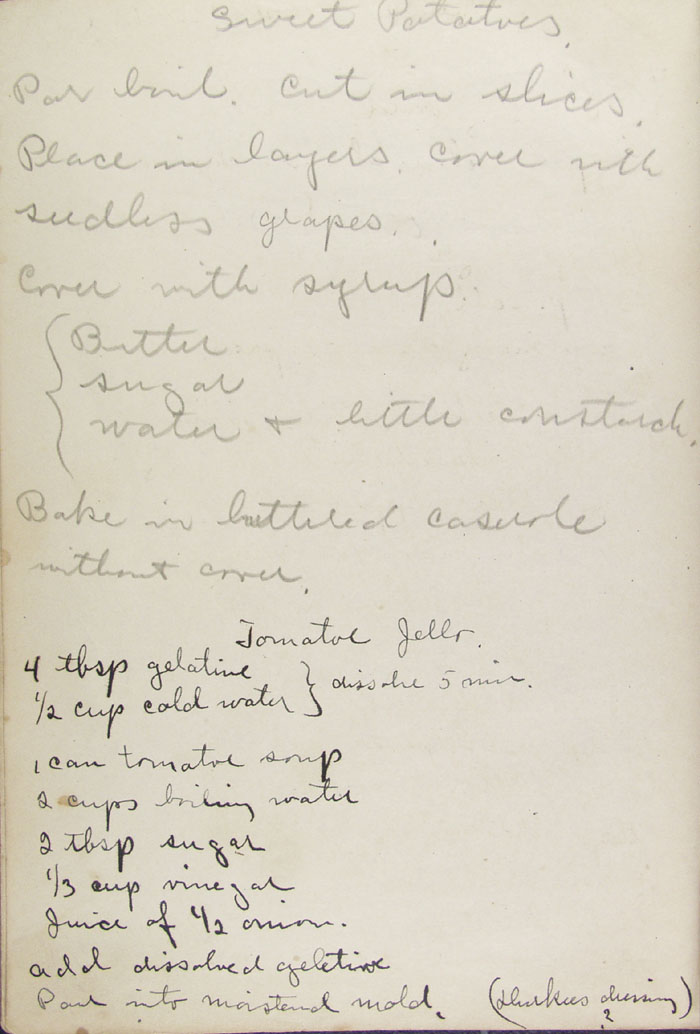 Sweet Potatoes.
Par boil. Cut in slices.
Place in layers. Cover with
seedless grapes.
Cover with syrup.
Butter
sugar
water + little cornstarch.
Bake in buttered caserole
without cover.
Tomatoe Jello.
4 tbsp gelatine
1/2 cup cold water } dissolve 5 min.
1 can tomatoe soup
2 cups boiling water
2 tbsp sugar
1/3 cup vinegar
Juice of 1/2 onion.
add dissolved geletine
Pour into moistend mold. (Durkees dressing)
?